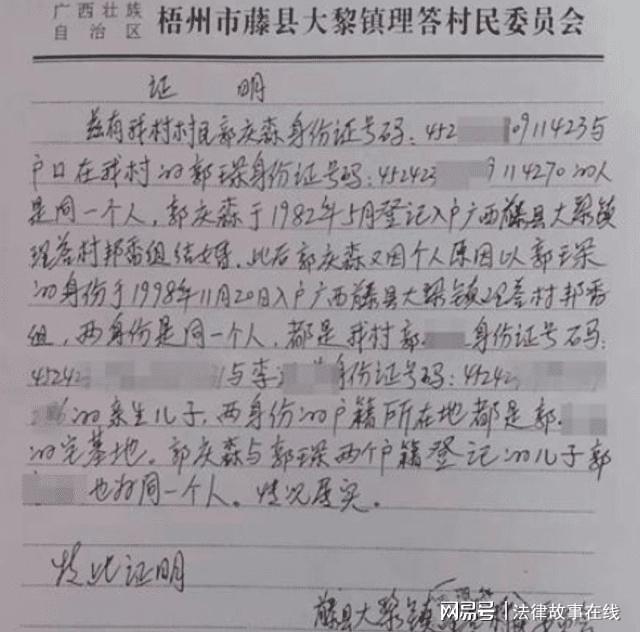 广西壮族
自治区 梧州市藤县大黎镇理答村民委员会
证 明
兹有我村村民郭庆森身份证号码：452 09114235与
户口在我村的郭琛身份证号码：452423 9114270的人
是同一个人，郭庆森于1982年5月登记入户广西藤县大黎镇
理答村邦番组结婚，此后郭庆森又因个人原因以郭琛
的身份于1998年11月20日入户广西藤县大黎镇理答村邦番
组，两身份是同一个人，都是我村郭 身份证号石马：
45242 与李 身份证号码：45242
6的亲生儿子，两身份的户籍所在地都是郭
的宅基地。郭庆森与郭琛两个户籍登记的儿子郭
也为同一个人。情况属实。
特此证明
藤县大黎镇
网易号 法律故事在线